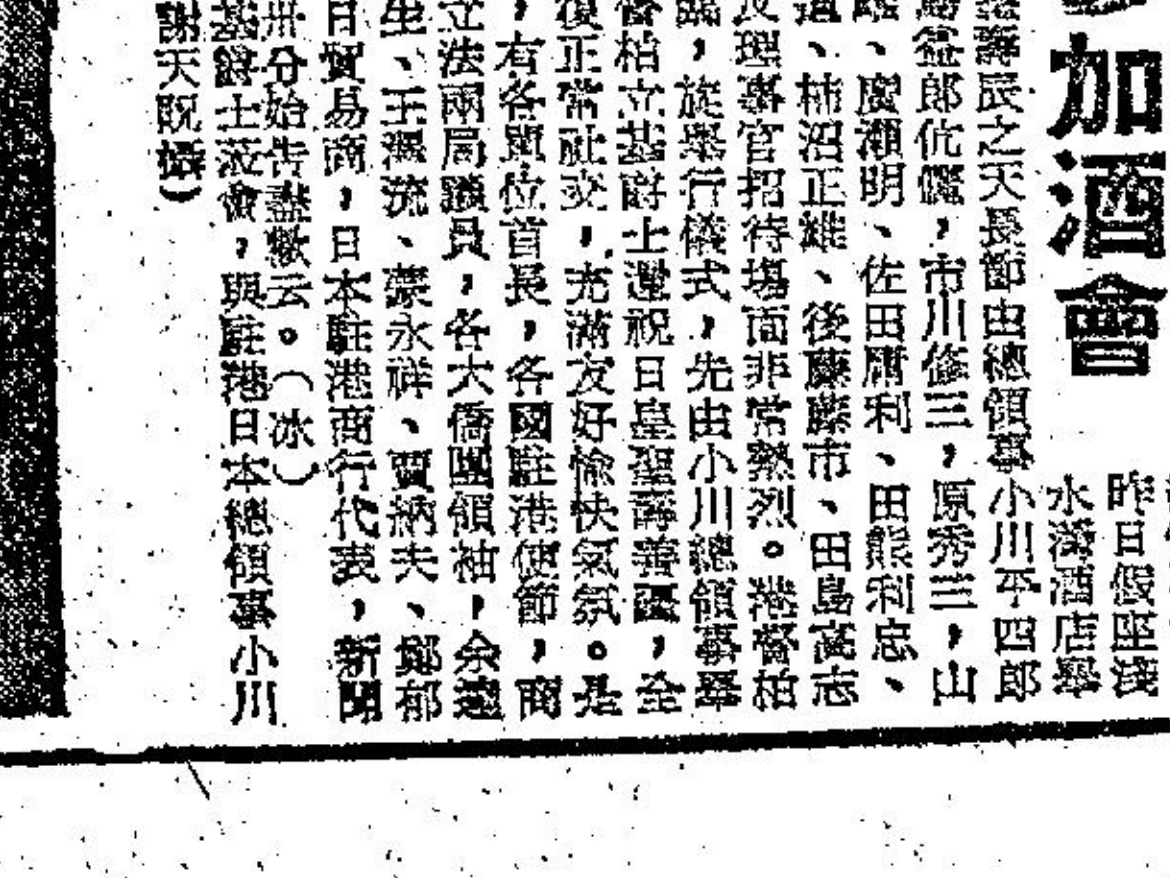 加酒會
昨日假座淺
水灣酒店舉
壽辰之天長節由總領事小川平四郎
益郎伉儷，市川修三，原秀三，山
、廣瀨明、佐田庸利、田熊利忠、
、柿沼正雄、後藤藤市、田島高志
理事官招待場面非常熱烈。港督柏
，旋舉行儀式，先由小川總領事舉
督柏立基爵士還祝日皇聖壽善疆，全
復正常社交，充滿友好愉快氣氛。是
，有各單位首長，各國駐港使節，商
立法兩局議員，各大僑團領袖，余達
生、王澤流、蒙永祥、賈納夫、鄧郁
日貿易商，日本駐港商行代表，新聞
卅分始告盡歡云。（冰）
基爵士蒞會，與駐港日本總領事小川
謝天既攝）